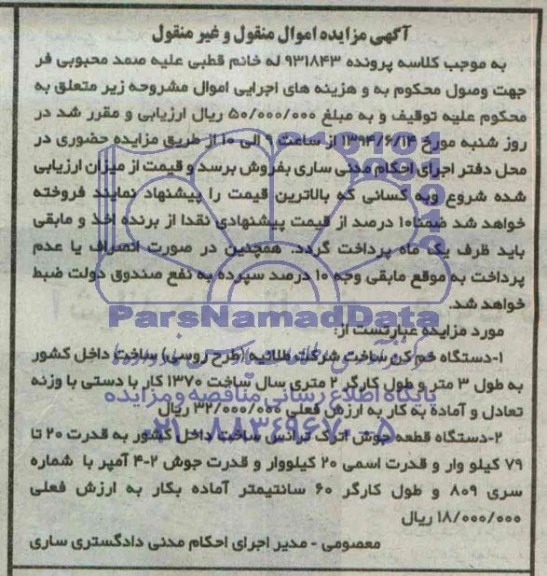 آگهی مزایده اموال منقول و غیر منقول
به موجب کلاسه پرونده ۹۳۱۸۴۳ له خانم قطبی علیه صمد محبوبی فر
جهت وصول محکوم به و هزینه های اجرایی اموال مشروحه زیر متعلق به
محکوم علیه توقیف و به مبلغ ۵۰/۰۰۰/۰۰۰ ریال ارزیابی و مقرر شد در
روز شنبه مورخ ۱۳۹۴/۶/۱۴ از ساعت ۹ الی ۱۰ از طریق مزایده حضوری در
محل دفتر اجرای احکام مدنی ساری بفروش برسد و قیمت از میزان ارزیابی
شده شروع وبه کسانی که بالاترین قیمت را پیشنهاد نمایند فروخته
خواهد شد ضمنا۱۰ درصد از قیمت پیشنهادی نقدا از برنده اخذ و مابقی
باید ظرف یک ماه پرداخت گردد. همچنین در صورت انصراف یا عدم
پرداخت به موقع مابقی وجه ۱۰ درصد سپرده به نفع صندوق دولت ضبط
خواهد شد.
ParsNamadData
مورد مزایده عبارتست از:
۱-دستگاه خم کن ساخت شرکت طلائیه(طرح روسی) ساخت داخل کشور
به طول ۳ متر و طول کارگر ۲ متری سال ساخت ۱۳۷۰ کار با دستی با وزنه
پایگاه اطلاع رسانی مناقصه و مزایده
تعادل و آماده به کار به ارزش فعلی ۳۲/۰۰۰/۰۰۰ ریال
۰۲۱-۸۸۳۴۹۶۷۰-۵
۲-دستگاه قطعه جوش اتک ترانس ساخت داخل کشور به قدرت ۲۰ تا
۷۹ کیلو وار و قدرت اسمی ۲۰ کیلووار و قدرت جوش ۲-۴ آمپر با شماره
سری ۸۰۹ و طول کارگر ۶۰ سانتیمتر آماده بکار به ارزش فعلی
۱۸/۰۰۰/۰۰۰ ریال
معصومی - مدیر اجرای احکام مدنی دادگستری ساری